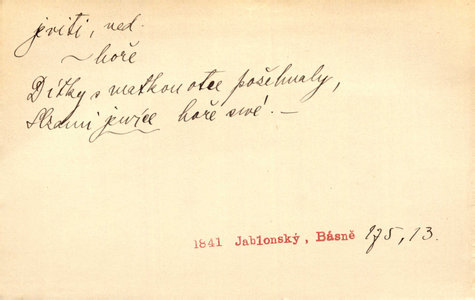 jeviti, ned.
~ hoře
Dítky s matkou otce pošehnaly,
Slzami jevíce hoře své. —
1841 Jablonský, Básně 175, 13.